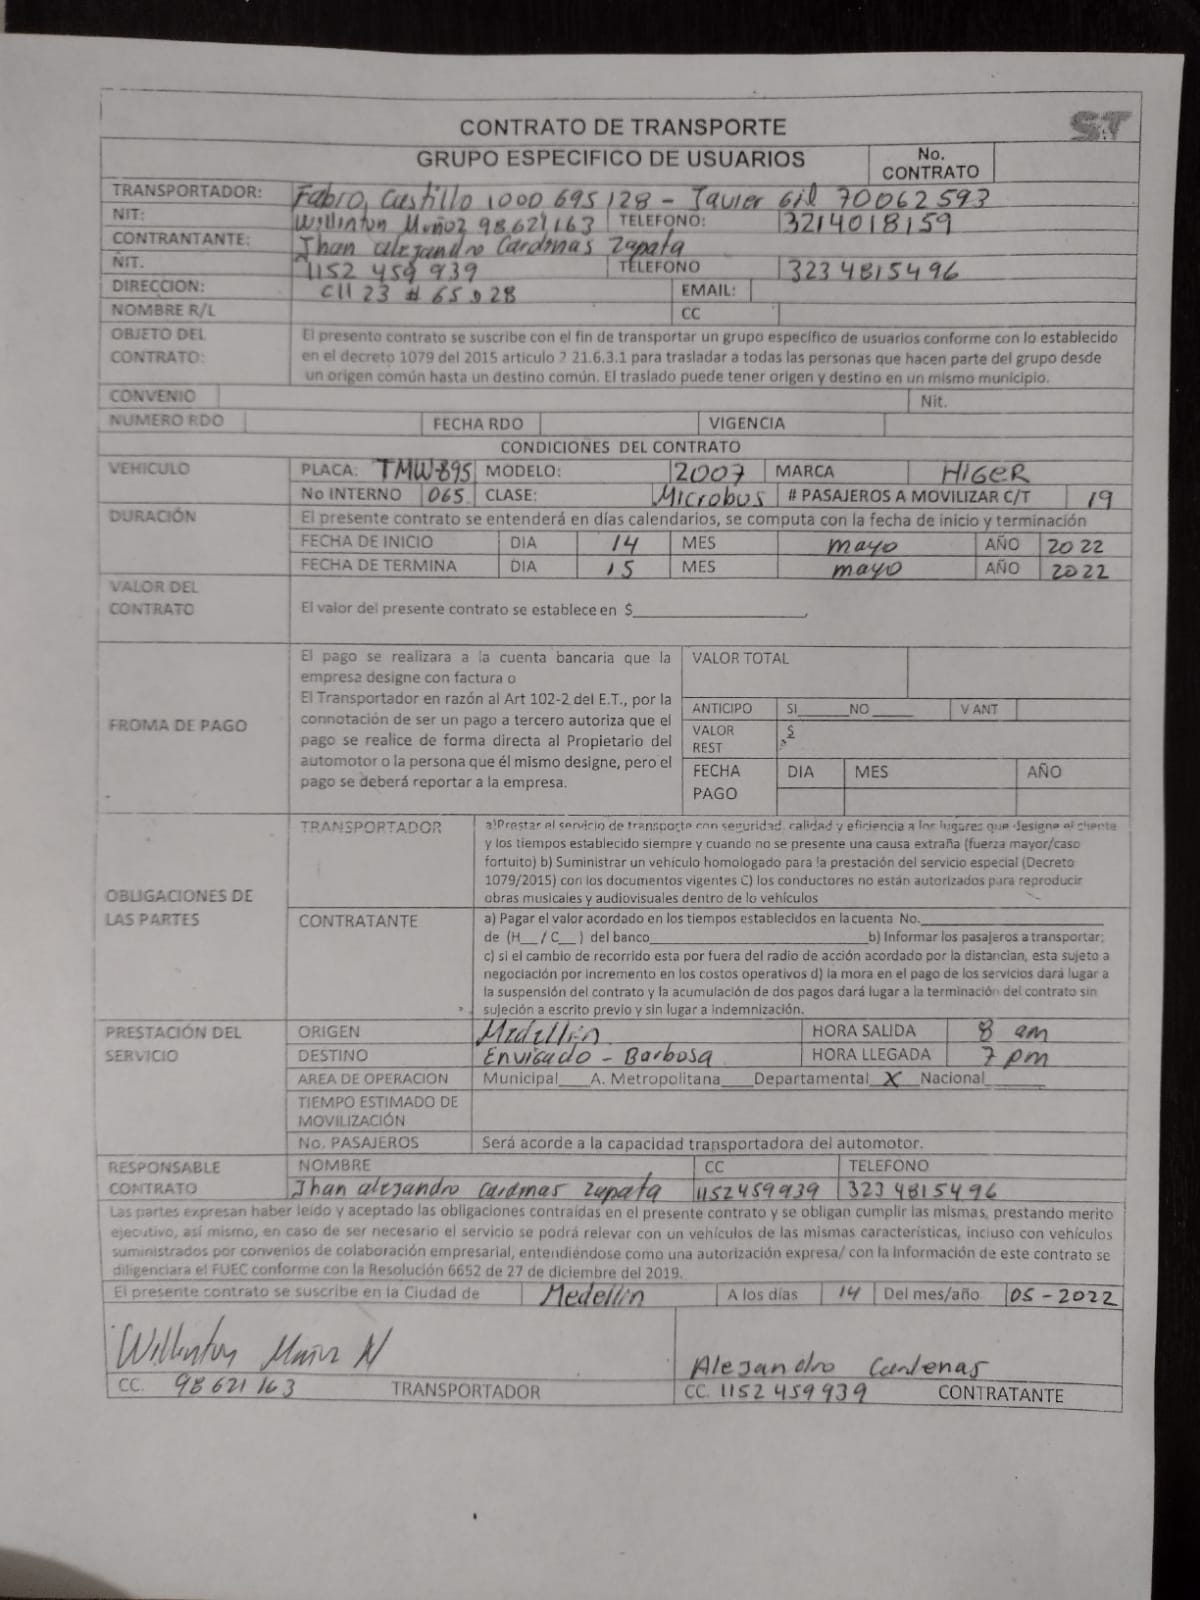 CONTRATO DE TRANSPORTE
S&T
GRUPO ESPECIFICO DE USUARIOS No. CONTRATO
TRANSPORTADOR: Fabio, Castillo 1000 695 128 - Javier Gil 70062593
NIT: Willinton Muñoz 98621163 TELEFONO: 3214018159
CONTRANTANTE: Jhan alejandro Cardenas Zapata
NIT. 1152 459 939 TELEFONO 323 4815496
DIRECCION: Cll 23 # 65 D 28 EMAIL:
NOMBRE R/L CC
OBJETO DEL CONTRATO: El presento contrato se suscribe con el fin de transportar un grupo específico de usuarios conforme con lo establecido
en el decreto 1079 del 2015 articulo 2 21.6.3.1 para trasladar a todas las personas que hacen parte del grupo desde
un origen común hasta un destino común. El traslado puede tener origen y destino en un mismo municipio.
CONVENIO Nit.
NUMERO RDO FECHA RDO VIGENCIA
CONDICIONES DEL CONTRATO
VEHICULO PLACA: TMW-895 MODELO: 2007 MARCA HIGER
No INTERNO 065 CLASE: Microbus # PASAJEROS A MOVILIZAR C/T 19
DURACIÓN El presente contrato se entenderá en días calendarios, se computa con la fecha de inicio y terminación
FECHA DE INICIO DIA 14 MES mayo AÑO 2022
FECHA DE TERMINA DIA 15 MES mayo AÑO 2022
VALOR DEL CONTRATO El valor del presente contrato se establece en $____________________,
FROMA DE PAGO
El pago se realizara a la cuenta bancaria que la
empresa designe con factura o
El Transportador en razón al Art 102-2 del E.T., por la
connotación de ser un pago a tercero autoriza que el
pago se realice de forma directa al Propietario del
automotor o la persona que él mismo designe, pero el
pago se deberá reportar a la empresa.
VALOR TOTAL
ANTICIPO SI______NO______ V ANT
VALOR REST $
FECHA PAGO DIA MES AÑO
OBLIGACIONES DE LAS PARTES
TRANSPORTADOR a)Prestar el servicio de transporte con seguridad, calidad y eficiencia a los lugares que designe el cliente
y los tiempos establecido siempre y cuando no se presente una causa extraña (fuerza mayor/caso
fortuito) b) Suministrar un vehículo homologado para la prestación del servicio especial (Decreto
1079/2015) con los documentos vigentes C) los conductores no están autorizados para reproducir
obras musicales y audiovisuales dentro de lo vehículos
CONTRATANTE a) Pagar el valor acordado en los tiempos establecidos en la cuenta No.______________________
de (H__ / C__ ) del banco__________________________b) Informar los pasajeros a transportar;
c) si el cambio de recorrido esta por fuera del radio de acción acordado por la distancian, esta sujeto a
negociación por incremento en los costos operativos d) la mora en el pago de los servicios dará lugar a
la suspensión del contrato y la acumulación de dos pagos dará lugar a la terminación del contrato sin
sujeción a escrito previo y sin lugar a indemnización.
PRESTACIÓN DEL SERVICIO
ORIGEN Medellín HORA SALIDA 8 am
DESTINO Envigado - Barbosa HORA LLEGADA 7 pm
AREA DE OPERACION Municipal____A. Metropolitana____Departamental_X__Nacional_______
TIEMPO ESTIMADO DE MOVILIZACIÓN
No. PASAJEROS Será acorde a la capacidad transportadora del automotor.
RESPONSABLE CONTRATO NOMBRE CC TELEFONO
Jhan alejandro Cardenas Zapata 1152459939 323 4815496
Las partes expresan haber leído y aceptado las obligaciones contraídas en el presente contrato y se obligan cumplir las mismas, prestando merito
ejecutivo, así mismo, en caso de ser necesario el servicio se podrá relevar con un vehículos de las mismas características, incluso con vehículos
suministrados por convenios de colaboración empresarial, entendiéndose como una autorización expresa/ con la Información de este contrato se
diligenciara el FUEC conforme con la Resolución 6652 de 27 de diciembre del 2019.
El presente contrato se suscribe en la Ciudad de Medellín A los días 14 Del mes/año 05 - 2022
Willinton Muñoz N
Alejandro Cardenas
CC. 98 621 163 TRANSPORTADOR CC. 1152 459939 CONTRATANTE